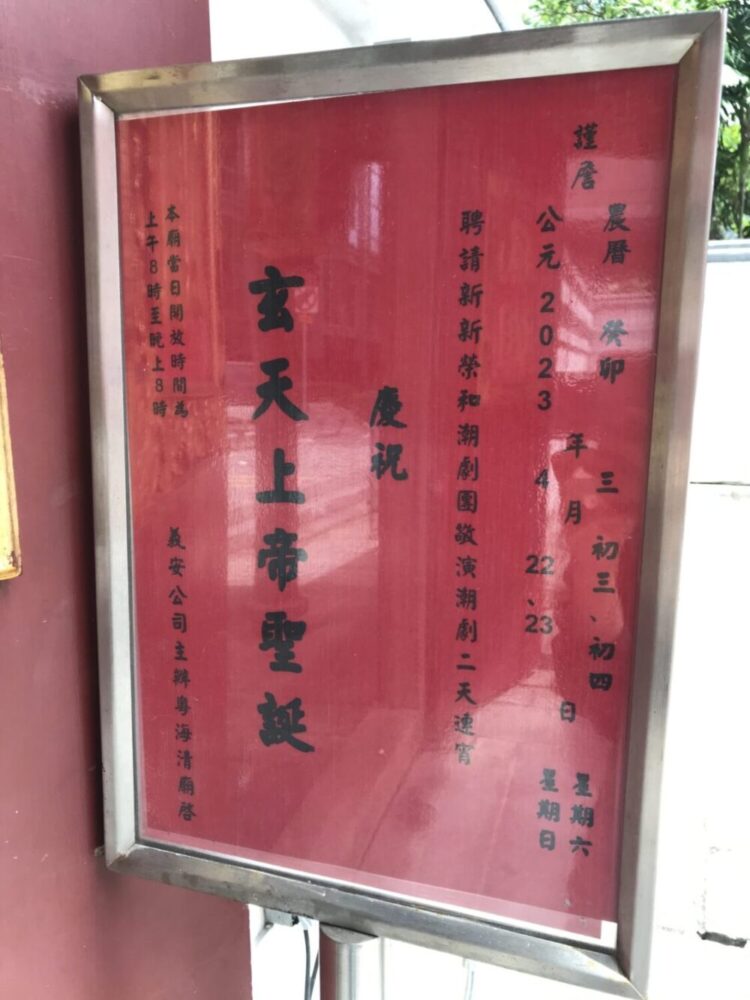 謹詹
農曆 癸卯 三 初三、初四 星期六
年 月 日
公元 2023 4 22、23 星期日
聘請新新榮和潮劇團敬演潮劇二天連宵
慶祝
玄天上帝聖誕
本廟當日開放時間為
上午8時至晚上8時
義安公司主辦粵海清廟啓